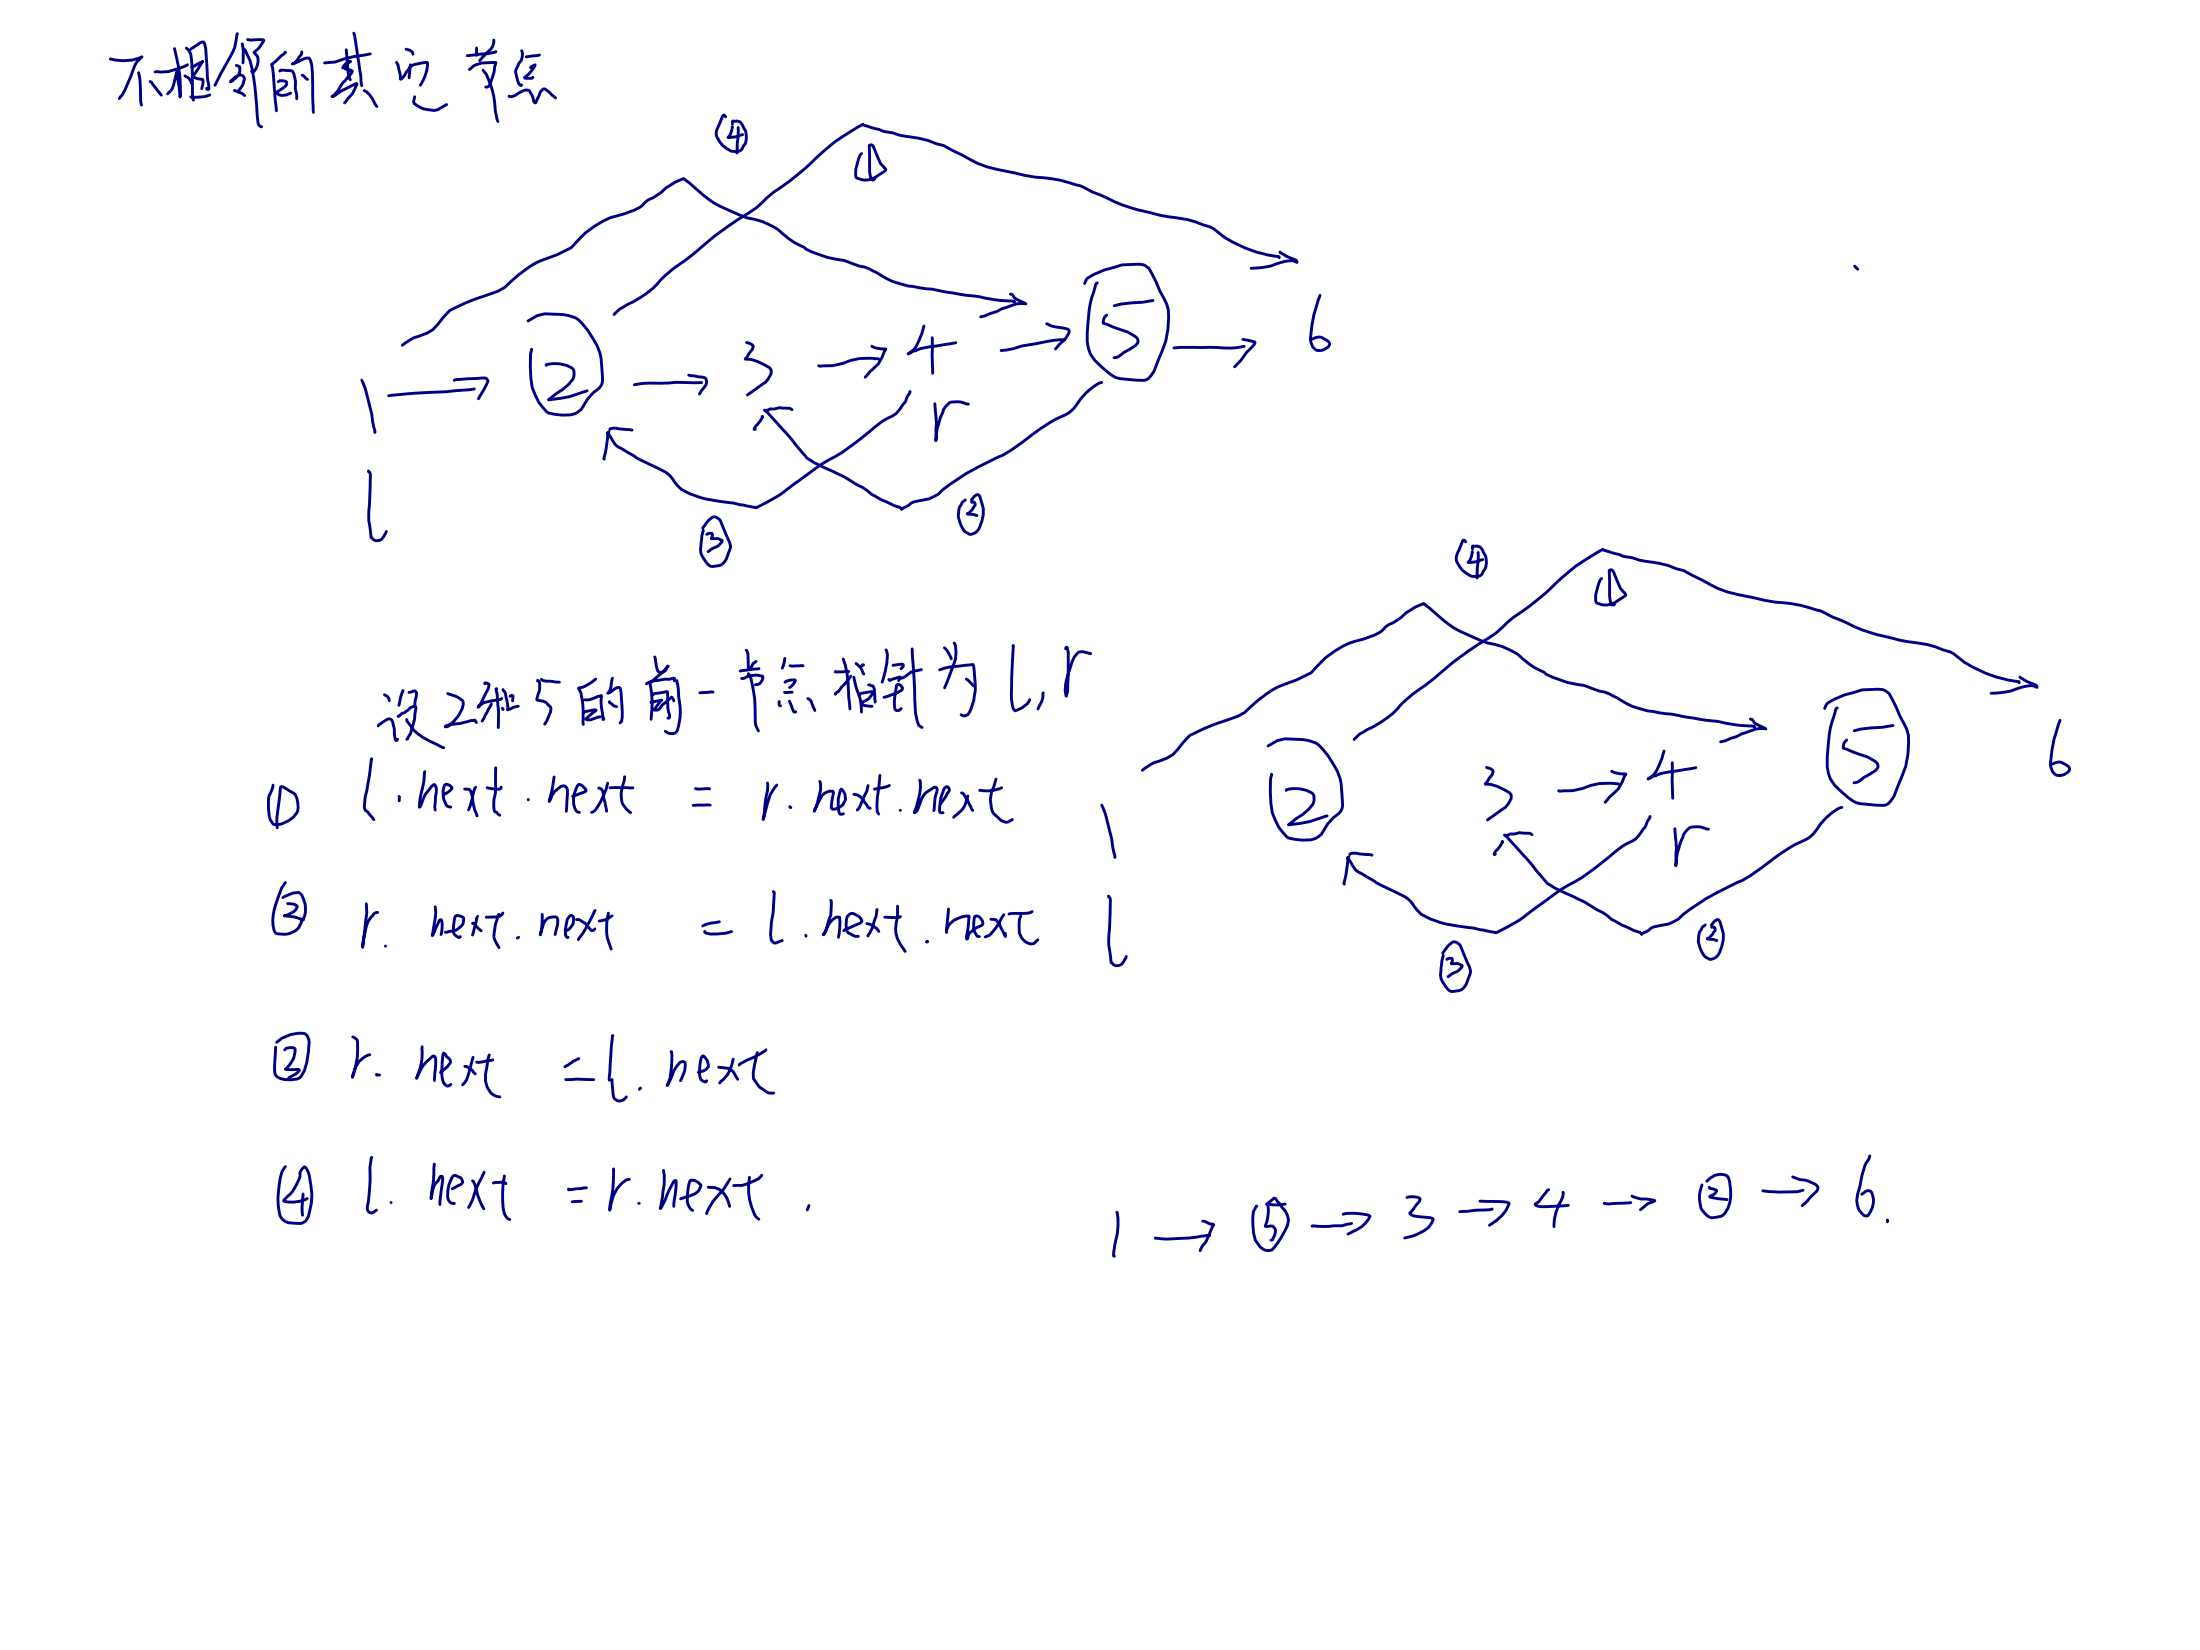 不相邻的其它节点
④ ①
1 → ② → 3 → 4 → ⑤ → 6
l r
③ ②
④ ①
设2和5的前一节点指针为l,r
1 ② 3 → 4 ⑤ 6
① l.next.next = r.next.next
r
② r.next.next = l.next.next l
③ ②
② r.next = l.next
④ l.next = r.next.
1 → ⑤ → 3 → 4 → ② → 6.